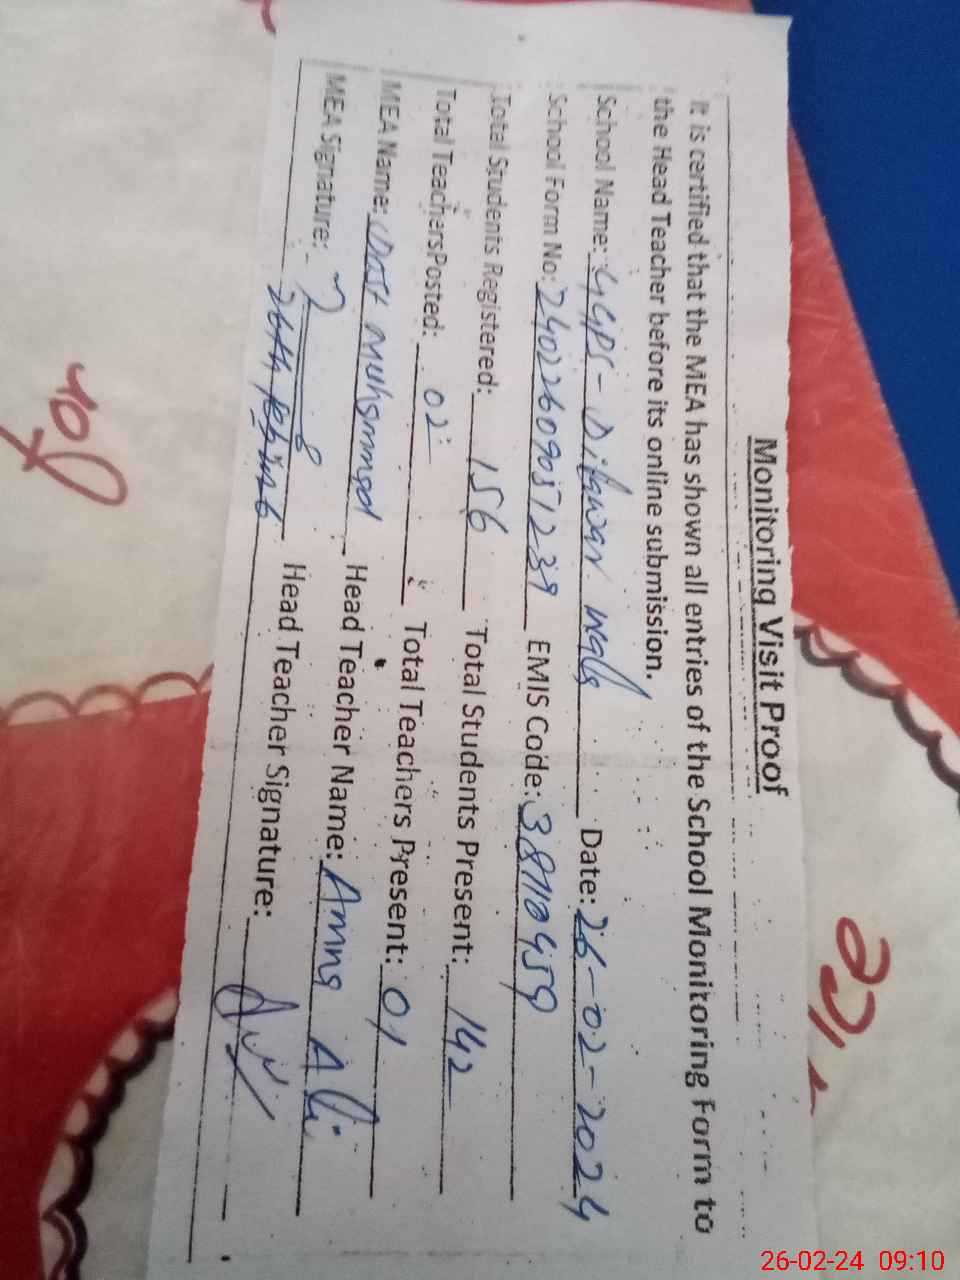 Monitoring Visit Proof
It is certified that the MEA has shown all entries of the School Monitoring Form to
the Head Teacher before its online submission.
School Name: GGPS - Dilawar wala Date: 26-02-2024
School Form No: 24022609051239 EMIS Code: 38110459
Total Students Registered: 156 Total Students Present: 142
Total Teachers Posted: 02 Total Teachers Present: 01
MEA Name: Muhammad Head Teacher Name: Amna Ali
MEA Signature: Head Teacher Signature:
26-02-24 09:10